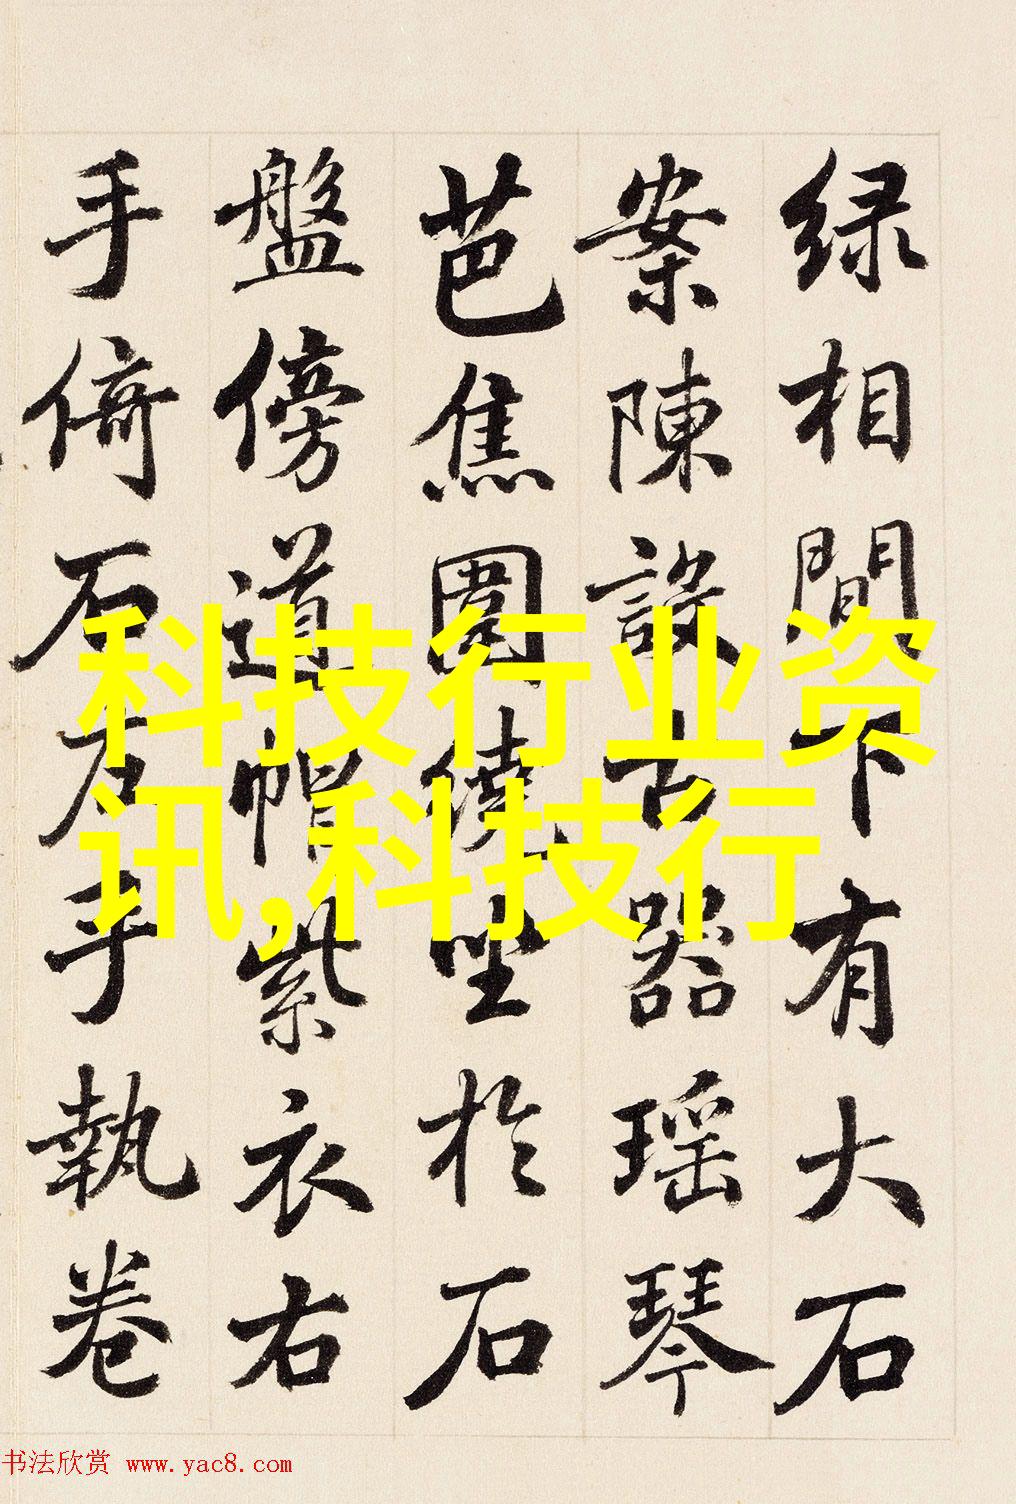 绿相間下有大石
案陳設古器瑶琴
芭焦圍繞坐於石
盤傍道帽紫衣右
手倚石左手執卷
科技行业资
讯,科技行
书法欣赏 www.yac8.com